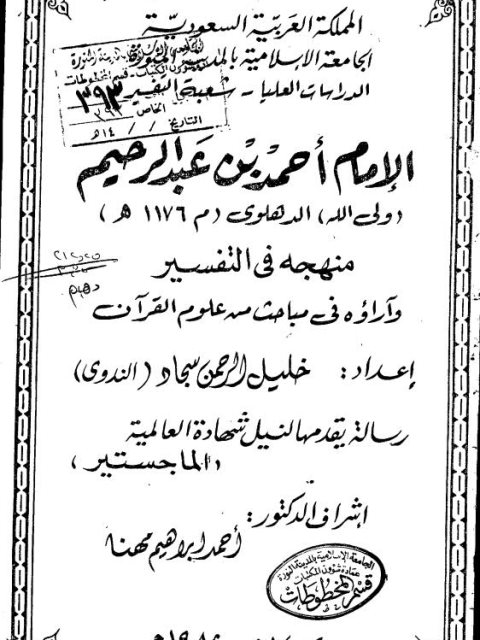 المملكة العربيّة السعوديّة
الجامعة الإسلامية بالمدينة المنورة
الدراسات العليا - شعبة التفسير
٣٩٣
الخاص
التاريخ / / ١٤هـ
الإمام أحمد بن عبد الرحيم
(ولى الله) الدهلوى (م ١١٧٦ هـ)
منهجه فى التفسير
وآراؤه فى مباحث من علوم القرآن
إعداد: خليل الرحمن سجاد (الندوى)
رسالة يقدمها لنيل شهادة العالمية
(الماجستير)
إشراف الدكتور:
أحمد إبراهيم مهنا
الجامعة الإسلامية بالمدينة المنورة
عمادة شؤون المكتبات
قسم المخطوطات